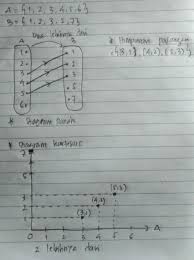 A = {1, 2, 3, 4, 5, 6}
B = {1, 2, 3
dua lebihnya dari
A B
1 1
2 2
3 3
4
5
6 7
* Diagram panah
* Himpunan pasangan
(3,1), (4,2), (5,3)
* Diagram kartesius
7
3 (5,3)
2 (4,2)
1 (3,1)
0 1 2 3 4 5 6 A
2 lebihnya dari